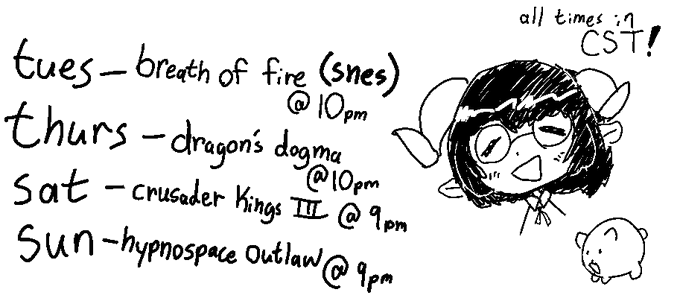 all times in
CST!
tues - breath of fire (snes)
@ 10pm
thurs - dragon's dogma
@10pm
sat - crusader kings III @ 9pm
sun - hypnospace outlaw @ 9pm